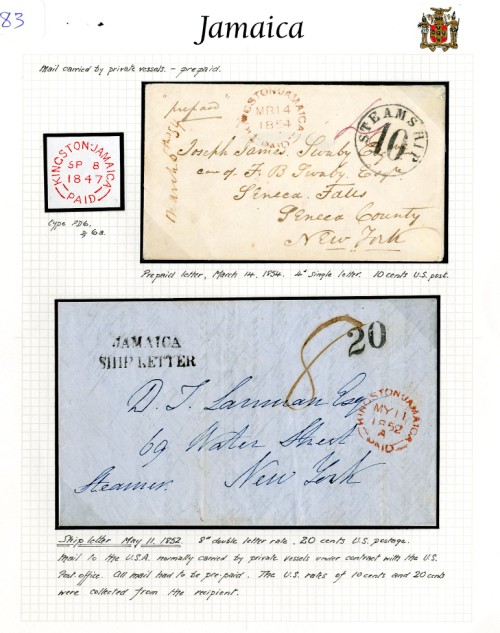 83
Jamaica
Mail carried by private vessels. - prepaid.
KINGSTON·JAMAICA
SP 8
1847
PAID
type PD6.
& 6a.
"prepaid"
KINGSTON·JAMAICA
MR 14
1854
PAID
STEAMSHIP
10
Joseph James Swaby Esqre
care of F B Swaby Esqre
Seneca Falls
Seneca County
New York
Prepaid letter, March 14. 1854. 4d single letter. 10 cents U.S. post.
JAMAICA
SHIP LETTER
8
20
KINGSTON·JAMAICA
MY 11
1852
A
PAID
D. T. Lanman Esq
69 Water Street
Steamer. New York
Ship letter May 11. 1852. 8d double letter rate. 20 cents U.S. postage.
Mail to the U.S.A. normally carried by private vessels under contract with the U.S.
Post office. All mail had to be pre-paid. The U.S. rates of 10 cents and 20 cents
were collected from the recipient.